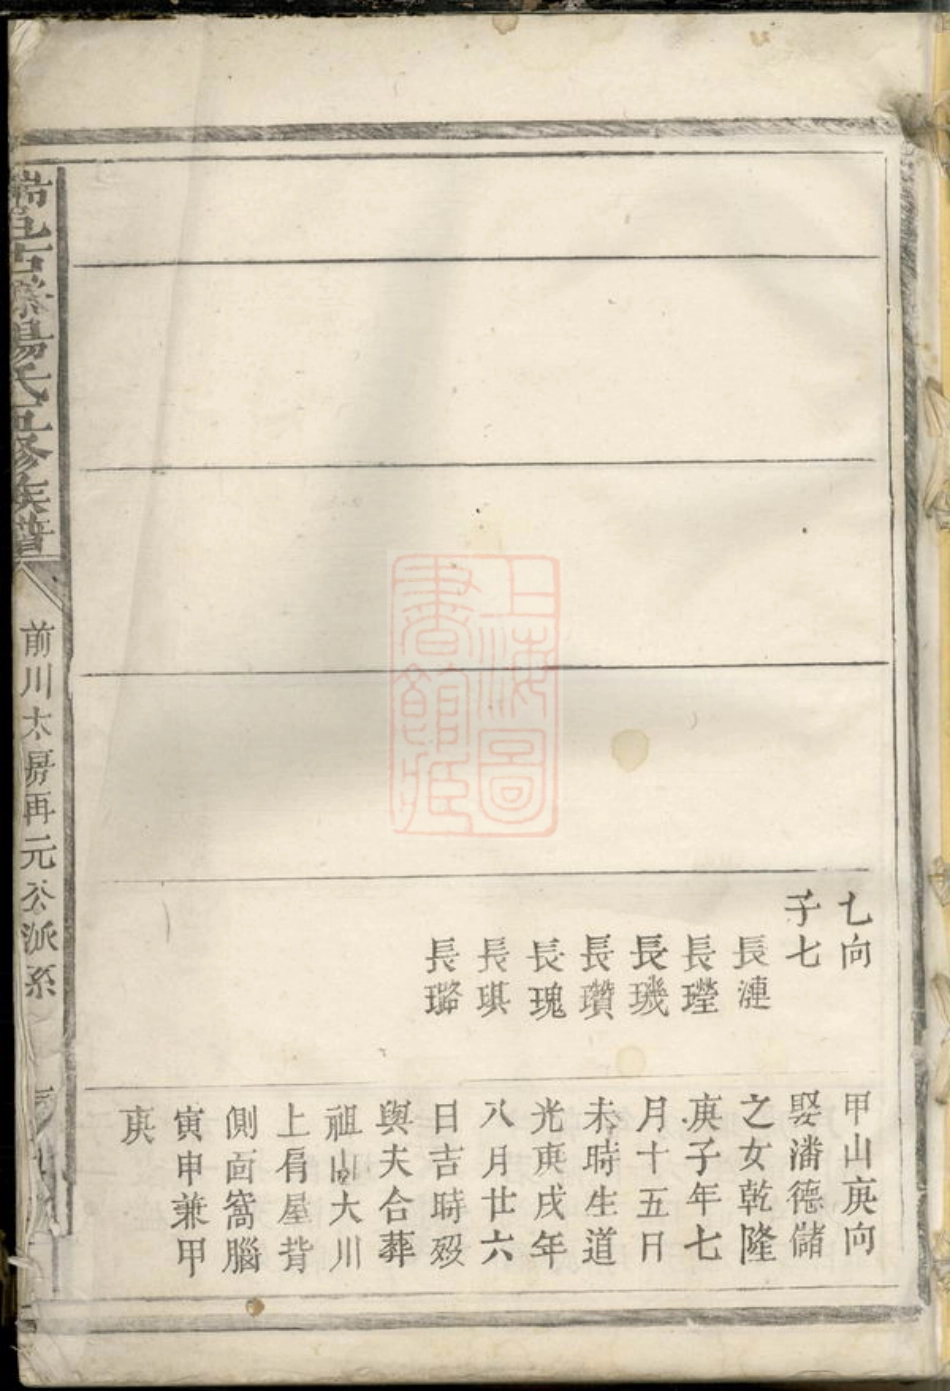 七向
子七
長漣
長瓘
長璣
長瓚
長瑰
長琪
長璐
甲山庚向
娶潘德儲
之女乾隆
庚子年七
月十五日
未時生道
光庚戌年
八月廿六
日吉時歿
與夫合葬
祖山大川
上肩屋背
側面窩腦
寅申兼甲
庚
楊氏五修族譜
前川太房再元公派系
上海圖
書館藏